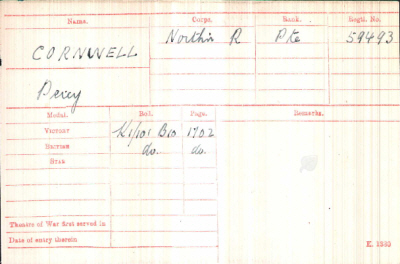 Name. Corps. Rank. Regtl. No.
CORNWELL Northn R Pte 59493
Percy
Medal. Roll. Page. Remarks.
VICTORY K/1/101 B10 1702
BRITISH do. do.
STAR
Theatre of War first served in
Date of entry therein
K. 1380